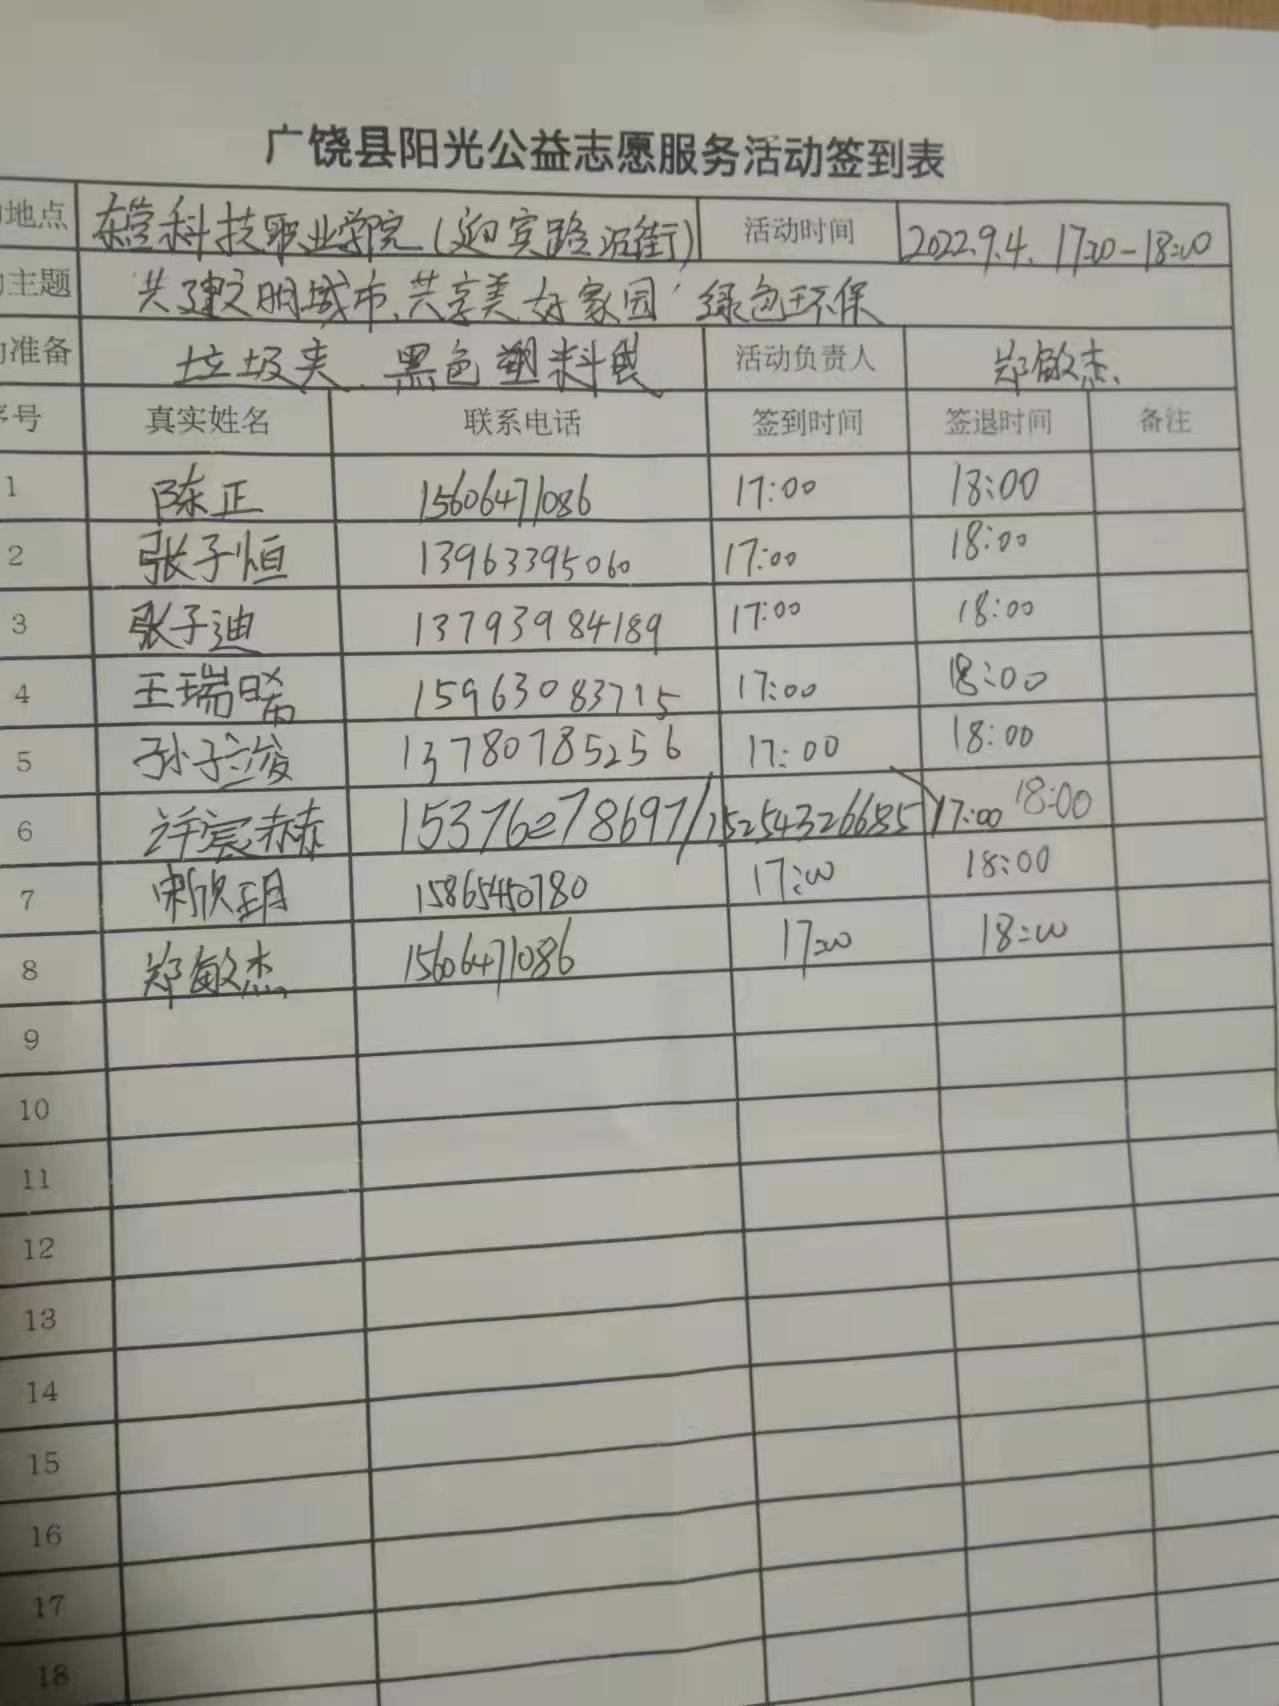 广饶县阳光公益志愿服务活动签到表
地点 东营科技职业学院(迎宾路沿街) 活动时间 2022.9.4. 17:00-18:00
主题 "共建文明城市、共享美好家园"绿色环保
准备 垃圾夹、黑色塑料袋 活动负责人 郑敏杰
序号 真实姓名 联系电话 签到时间 签退时间 备注
1 陈正 15606471086 17:00 18:00
2 张子恒 13963395060 17:00 18:00
3 张子迪 13793984189 17:00 18:00
4 王瑞晞 15963083715 17:00 18:00
5 孙子竣 13780785256 17:00 18:00
6 许宸赫 15376278697/15254326685 17:00 18:00
7 宋欣玥 15865450780 17:00 18:00
8 郑敏杰 15606471086 17:00 18:00
9
10
11
12
13
14
15
16
17
18